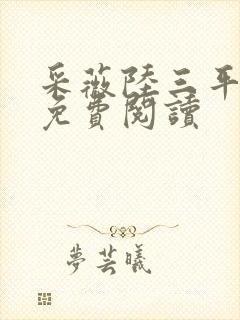 采薇陸三平
免費閱讀
夢芸曦